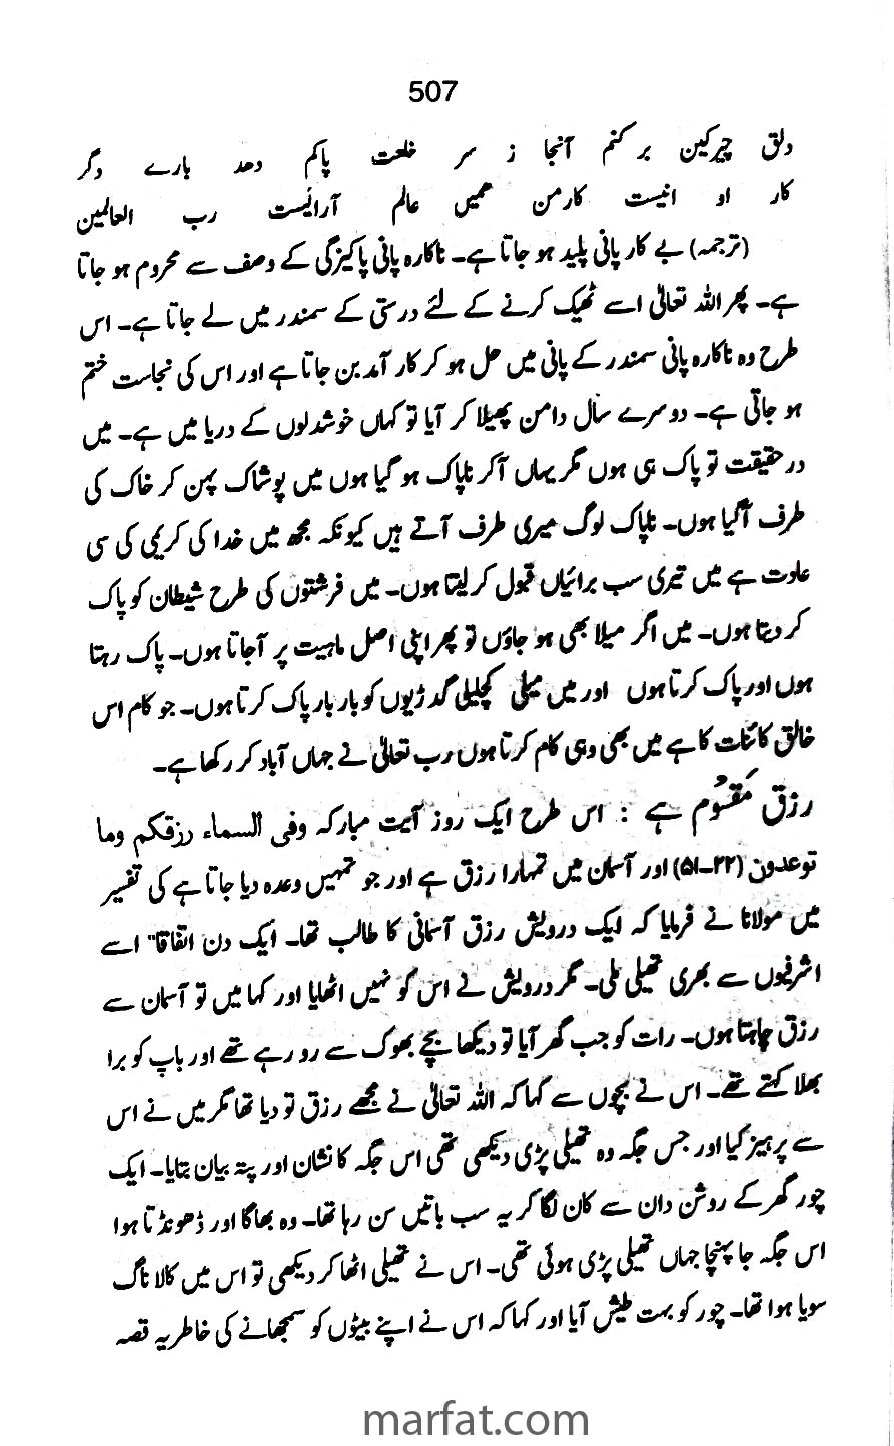 507
دلق چرکیں بر کنم آنجا ز سر خلعت پاکم دھد بارے دگر
کار او انیست کارمن ہمیں عالم آرائیست رب العالمین
(ترجمہ) بے کار پانی پلید ہو جاتا ہے۔ ناکارہ پانی پاکیزگی کے وصف سے محروم ہو جاتا
ہے۔ پھر اللہ تعالیٰ اسے ٹھیک کرنے کے لئے درستی کے سمندر میں لے جاتا ہے۔ اس
طرح وہ ناکارہ پانی سمندر کے پانی میں حل ہو کر کار آمد بن جاتا ہے اور اس کی نجاست ختم
ہو جاتی ہے۔ دوسرے سال دامن پھیلا کر آیا تو کہاں خوشدلوں کے دریا میں ہے۔ میں
در حقیقت تو پاک ہی ہوں مگر یہاں آکر ناپاک ہو گیا ہوں میں پوشاک پہن کر خاک کی
طرف آگیا ہوں۔ ناپاک لوگ میری طرف آتے ہیں کیونکہ مجھ میں خدا کی کریمی کی سی
عادت ہے میں تیری سب برائیاں قبول کر لیتا ہوں۔ میں فرشتوں کی طرح شیطان کو پاک
کر دیتا ہوں۔ میں اگر میلا بھی ہو جاؤں تو پھر اپنی اصل ماہیت پر آجاتا ہوں۔ پاک رہتا
ہوں اور پاک کرتا ہوں اور میں میلی کچیلی گدڑیوں کو بار بار پاک کرتا ہوں۔ جو کام اس
خالق کائنات کا ہے میں بھی وہی کام کرتا ہوں رب تعالیٰ نے جہاں آباد کر رکھا ہے۔
رزق مَقسُوم ہے : اس طرح ایک روز آیت مبارکہ وفی السماء رزقکم وما
توعدون (۲۲-۵۱) اور آسمان میں تمہارا رزق ہے اور جو تمہیں وعدہ دیا جاتا ہے کی تفسیر
میں مولانا نے فرمایا کہ ایک درویش رزق آسمانی کا طالب تھا۔ ایک دن اتفاقا" اسے
اشرفیوں سے بھری تھیلی ملی۔ مگر درویش نے اس کو نہیں اٹھایا اور کہا میں تو آسمان سے
رزق چاہتا ہوں۔ رات کو جب گھر آیا تو دیکھا بچے بھوک سے رو رہے تھے اور باپ کو برا
بھلا کہتے تھے۔ اس نے بچوں سے کہا کہ اللہ تعالیٰ نے مجھے رزق تو دیا تھا مگر میں نے اس
سے پرہیز کیا اور جس جگہ وہ تھیلی پڑی دیکھی تھی اس جگہ کا نشان اور پتہ بیان بتایا۔ ایک
چور گھر کے روشن دان سے کان لگا کر یہ سب باتیں سن رہا تھا۔ وہ بھاگا اور ڈھونڈتا ہوا
اس جگہ جا پہنچا جہاں تھیلی پڑی ہوئی تھی۔ اس نے تھیلی اٹھا کر دیکھی تو اس میں کالا ناگ
سویا ہوا تھا۔ چور کو بہت طیش آیا اور کہا کہ اس نے اپنے بیٹوں کو سمجھانے کی خاطر یہ قصہ
marfat.com